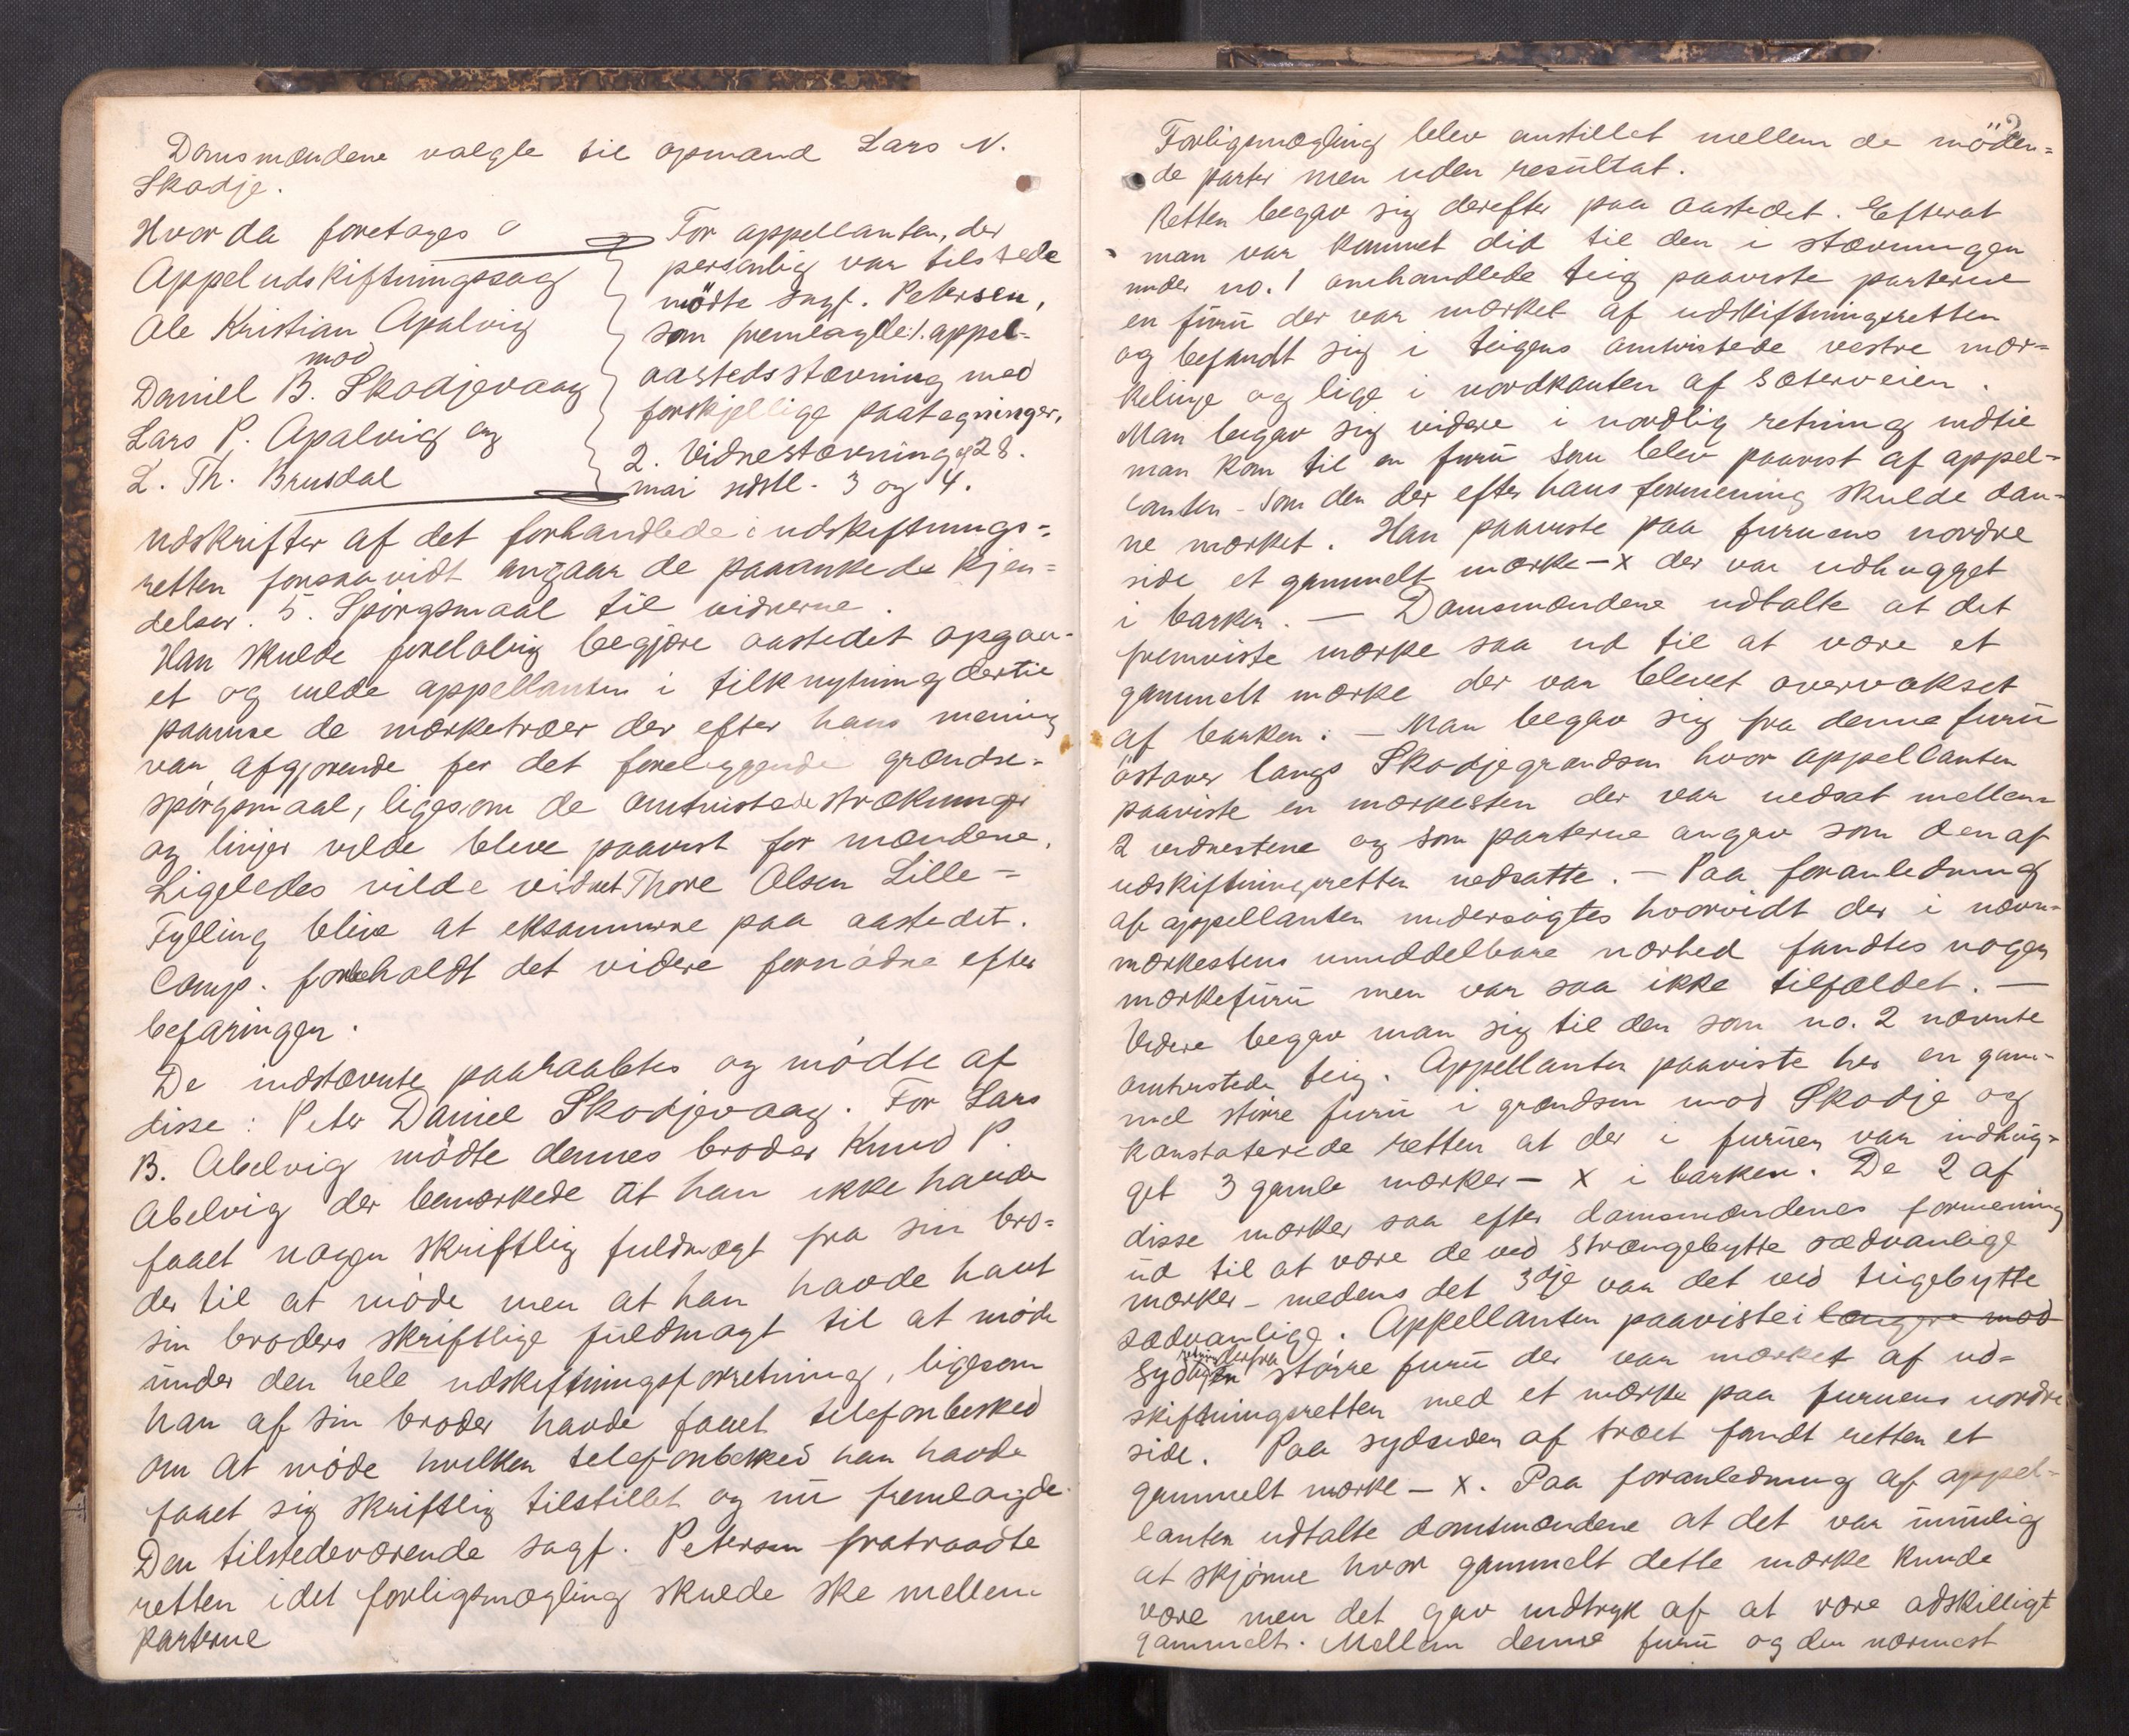 Domsmændene valgte til opmand Lars N.
Skodje.
Hvor da foretages
Appeludskiftningssag
Ole Kristian Apalvig
mod
Daniel B. Skodjevaag
Lars P. Apalvig og
L. Th. Brusdal
For appellanten, der
personlig var tilstede
mödte sagf. Petersen,
som fremlagde: 1. appel-
aastedsstævning med
forskjellige paategninger,
2. Vidnestævning af 28.
mai sidstl. 3 og 4.
udskrifter af det forhandlede i udskiftnings=
retten forsaavidt angaar de paaankede kjen=
delser. 5. Spörgsmaal til vidnerne.
Han skulde foreløbig begjære aastedet opgaa-
et og vilde appellanten i tilknytning dertil
paavise de mærketræer der efter hans mening
var afgjørende for det foreliggende grændse-
spörgsmaal, ligesom de omtvistede strækninger
og linjer vilde blive paavist for mændene.
Ligeledes vilde vidnet Thore Olsen Lille=
Fylling blive at eksaminere paa aastedet.
Comp. forbeholdt det videre fornødne efter
befaringen.
De indstævnte paaraabtes og mödte af
disse: Peter Daniel Skodjevaag. For Lars
B. Abelvig mödte dennes broder Knud P.
Abelvig der bemærkede at han ikke havde
faaet nogen skriftlig fuldmagt fra sin bro=
der til at möde men at han havde havt
sin broders skriftlige fuldmagt til at möde
under den hele udskiftningsforretning, ligesom
han af sin broder havde faaet telefonbesked
om at möde hvilken telefonbesked han havde
faaet sig skriftlig tilstillet og nu fremlagde.
Den tilstedeværende sagf. Petersen fratraadte
retten idet forligsmægling skulde ske mellem
parterne
2
Forligsmægling blev anstillet mellem de möden=
de parter men uden resultat.
Retten begav sig derefter paa aastedet. Efterat
man var kommet did til den i stævningen
under no. 1 omhandlede teig paaviste parterne
en furu der var mærket af udskiftningsretten
og befandt sig i teigens omtvistede vestre mær=
kelinje og lige i nordkanten af Sæterveien.
Man begav sig videre i nordlig retning indtil
man kom til en furu som blev paavist af appel=
lanten som den der efter hans formening skulde dan-
ne mærket. Han paaviste paa furuens nordre
side et gammelt mærke - x der var udhugget
i barken. — Domsmændene udtalte at det
fremviste mærke saa ud til at være et
gammelt mærke der var blevet overvokset
af barken. — Man begav sig fra denne furu
östover langs Skodjegrændsen hvor appellanten
paaviste en mærkesten der var nedsat mellem
2 vidnestene og som parterne angav som den af
udskiftningsretten nedsatte. — Paa foranledning
af appellanten undersögtes hvorvidt der i nævn-
mærkestens umiddelbare nærhed fandtes nogen
mærkefuru men var saa ikke tilfældet. —
Videre begav man sig til den som no. 2 nævnte
omtvistede teig. Appellanten paaviste her en gam-
mel större furu i grændsen mod Skodje og
konstaterede retten at der i furuen var indhug=
get 3 gamle mærker - x i barken. De 2 af
disse mærker saa efter domsmændenes formening
ud til at være de ved strængebytte sædvanlige
mærker - medens det 3dje var det ved teigebytte
sædvanlige. Appellanten paaviste i længere mod
sydlig retning derfra en större furu der var mærket af ud=
skiftningsretten med et mærke paa furuens nordre
side. Paa sydsiden af træet fandt retten et
gammelt mærke - x. Paa foranledning af appel=
lanten udtalte domsmændene at det var umulig
at skjönne hvor gammelt dette mærke kunde
være men det gav indtryk af at være adskilligt
gammelt. Mellem denne furu og den nærmest